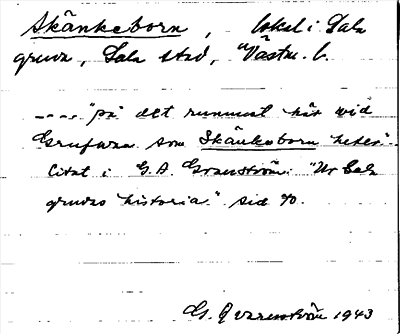 Skänkeborn, lokal i Sala
gruva, Sala stad, Västm. l.
---- "på det rummet här wid
Grufwan som Skänkeborn heter."
Citat i G.A. Granström: "Ur Sala
gruvas historia" sid 70.
G. Qvarnström 1943